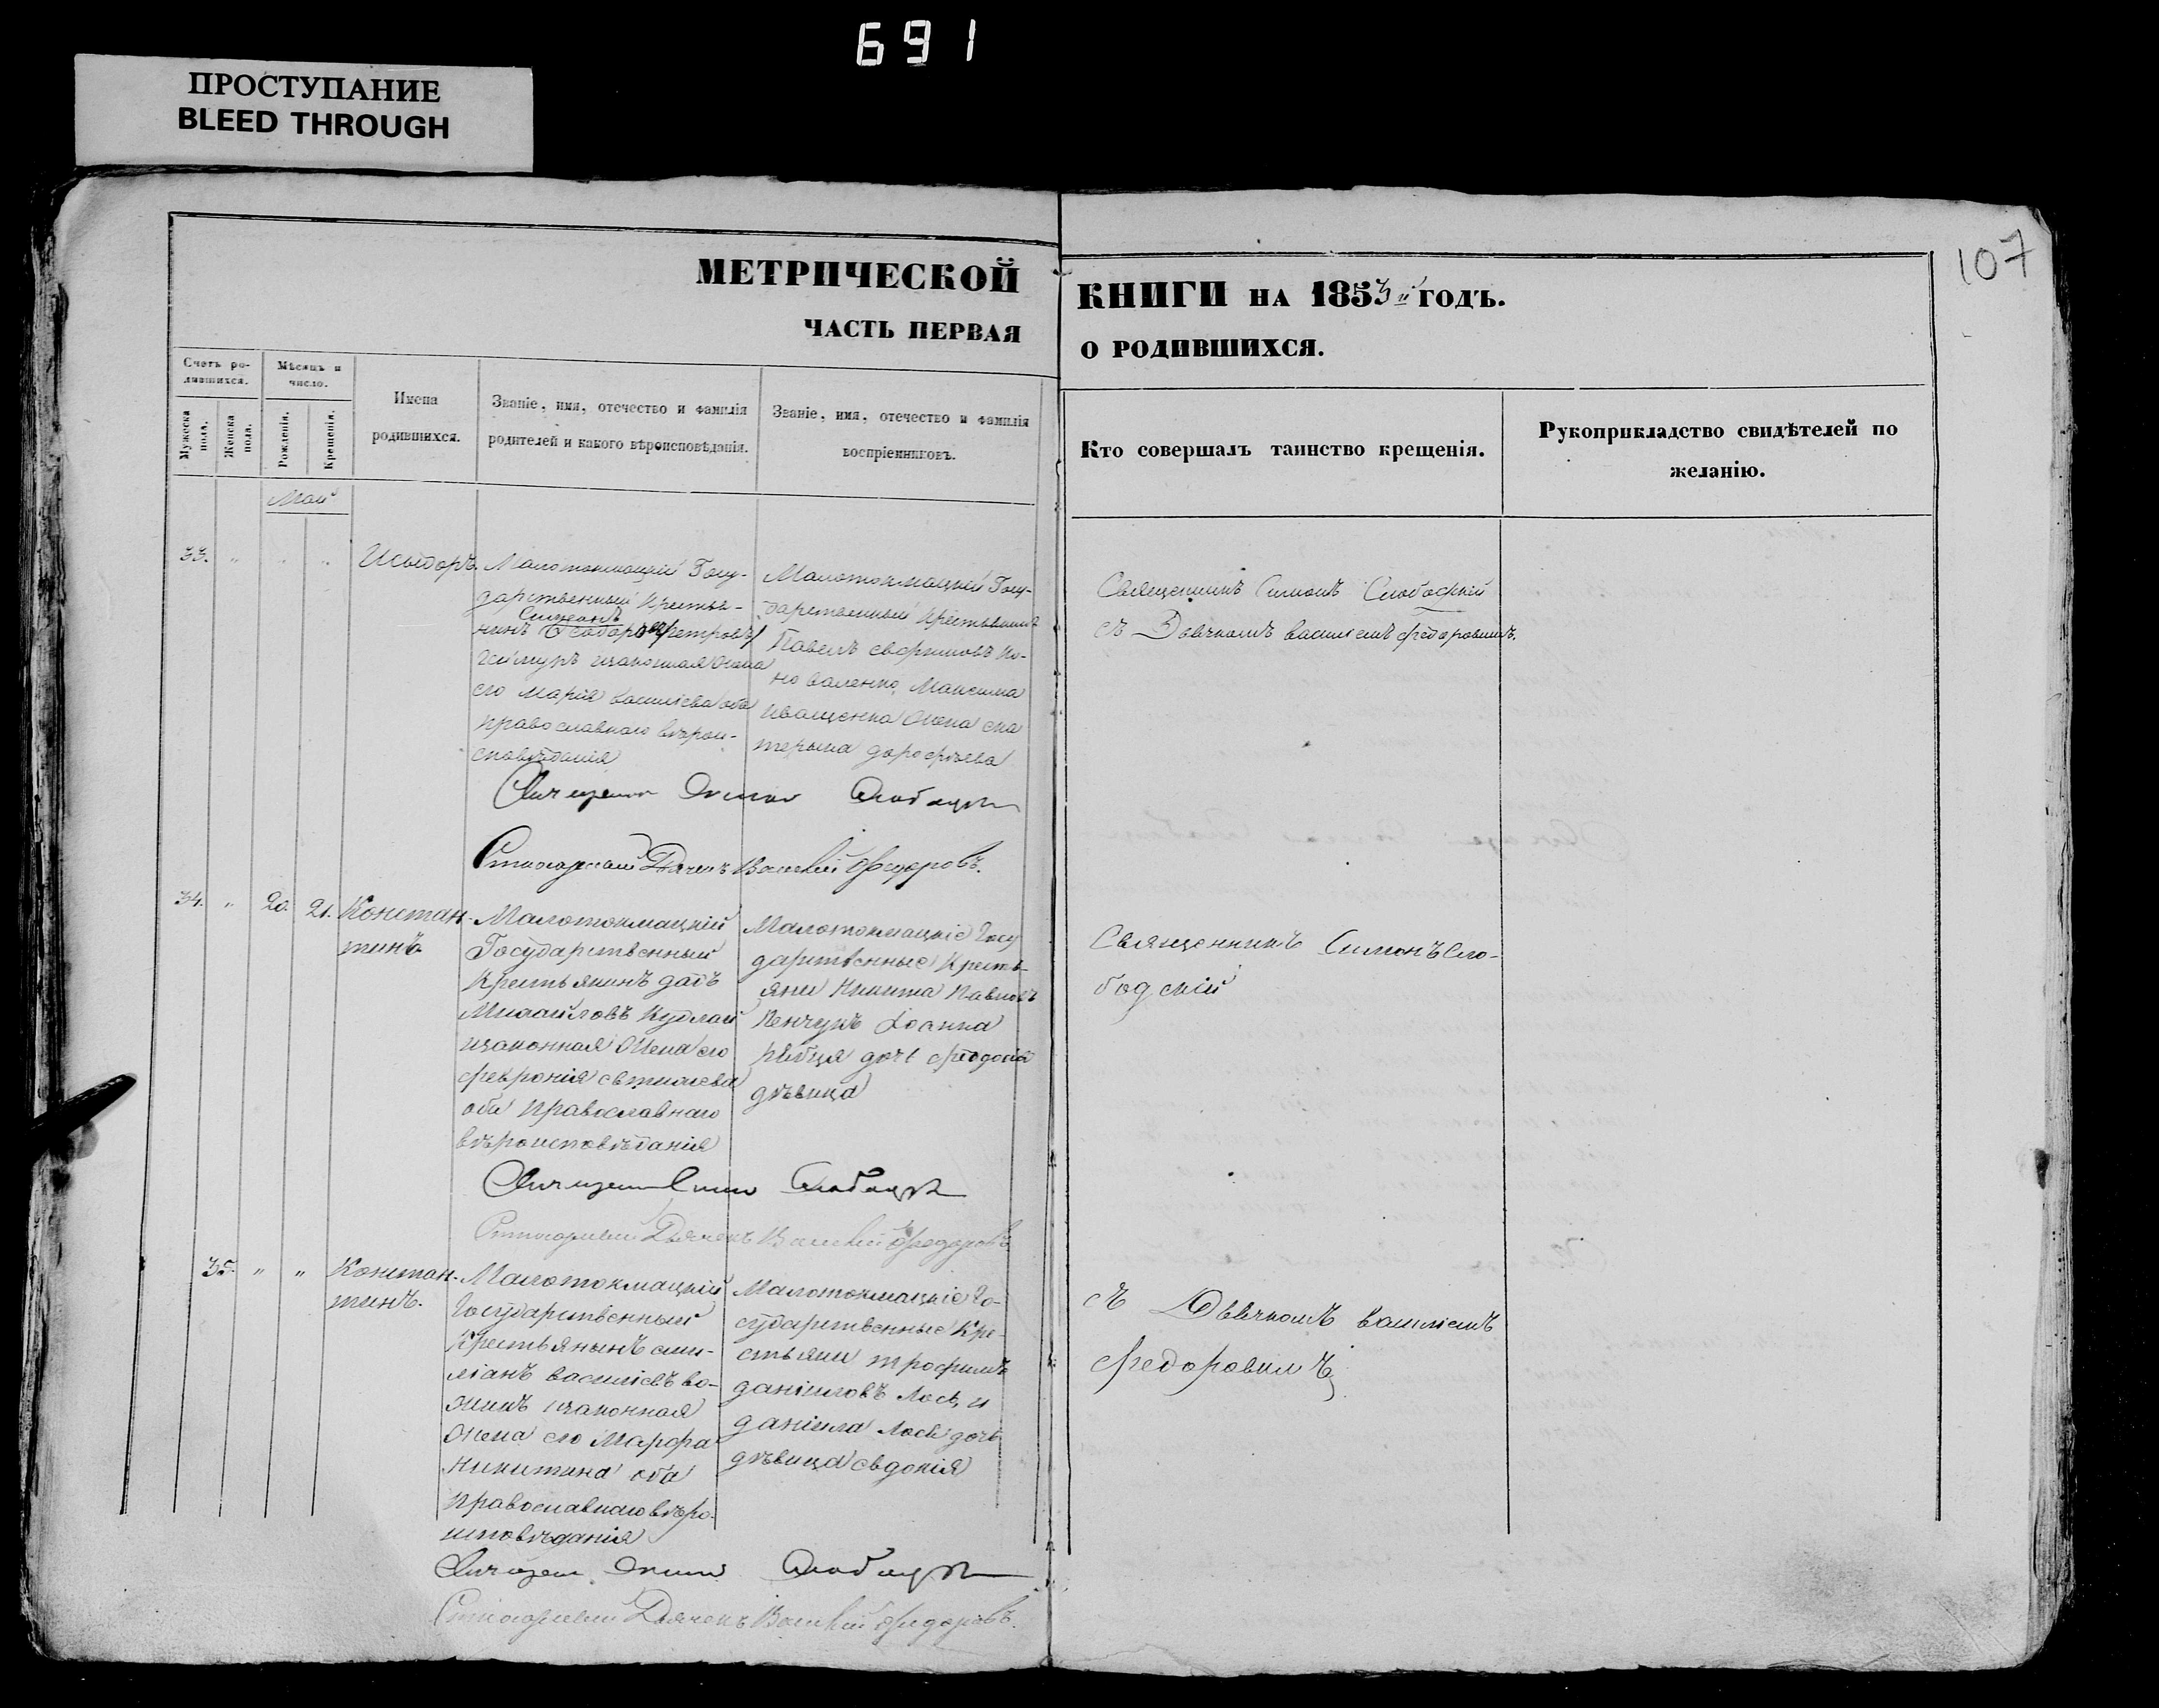 691
ПРОСТУПАНИЕ
BLEED THROUGH
107
МЕТРИЧЕСКОЙ
ЧАСТЬ ПЕРВАЯ
КНИГИ НА 1853 й ГОДЪ.
О РОДИВШИХСЯ.
Счетъ ро-
дившихся.
Мужеска пола.
Женска пола.
Мѣсяцъ и
число.
Рожденія.
Крещенія.
Имена
родившихся.
Званіе, имя, отечество и фамилія
родителей и какого вѣроисповѣданія.
Званіе, имя, отечество и фамилія
воспріемниковъ.
Кто совершалъ таинство крещенія.
Рукоприкладство свидѣтелей по
желанію.
Май
33. " " "
Исыдоръ.
Малотокмацкій Госу-
дарственный Крестья-
нинъ Петровъ
изаконная Жена
его Марія василіева оба
православнаго вѣрои-
сповѣданія
Малотокмацкій Госу-
дарственный Крестьянинъ
Павелъ Ко-
новаленко, Максима
иващенка Жена ека
терына дорофѣева
Священникъ Симонъ Слободскій
съ Дьячкомъ василіемъ федоровымъ.
Дячекъ Василій Федоровъ.
34. " 20. 21.
Констан-
тинъ
Малотокмацкій
Государственный
Крестьянинъ
Михайловъ Кудлай
изаконная Жена его
февронія евтихіева
оба православнаго
вѣроисповѣданія
Малотокмацкіе Госу
дарственные Кресть-
яни Никита Павловъ
дочь феодосія
дѣвица
Священникъ Симонъ Сло-
бодскій
Дьячекъ Василій Федоровъ
35. " "
Констан-
тинъ.
Малотокмацкій
Государственный
Крестьянынъ еми-
ліанъ василіевъ во-
изаконная
Жена его Марфа
Никитина оба
православнаго вѣро-
исповѣданія
Малотокмацкіе Го-
сударственные Кре-
стьяни трофимъ
даніиловъ Лось, и
даніила Лося дочь
дѣвица евдокія
съ Дьячкомъ василіемъ
федоровымъ
Дьячекъ Василій Федоровъ.